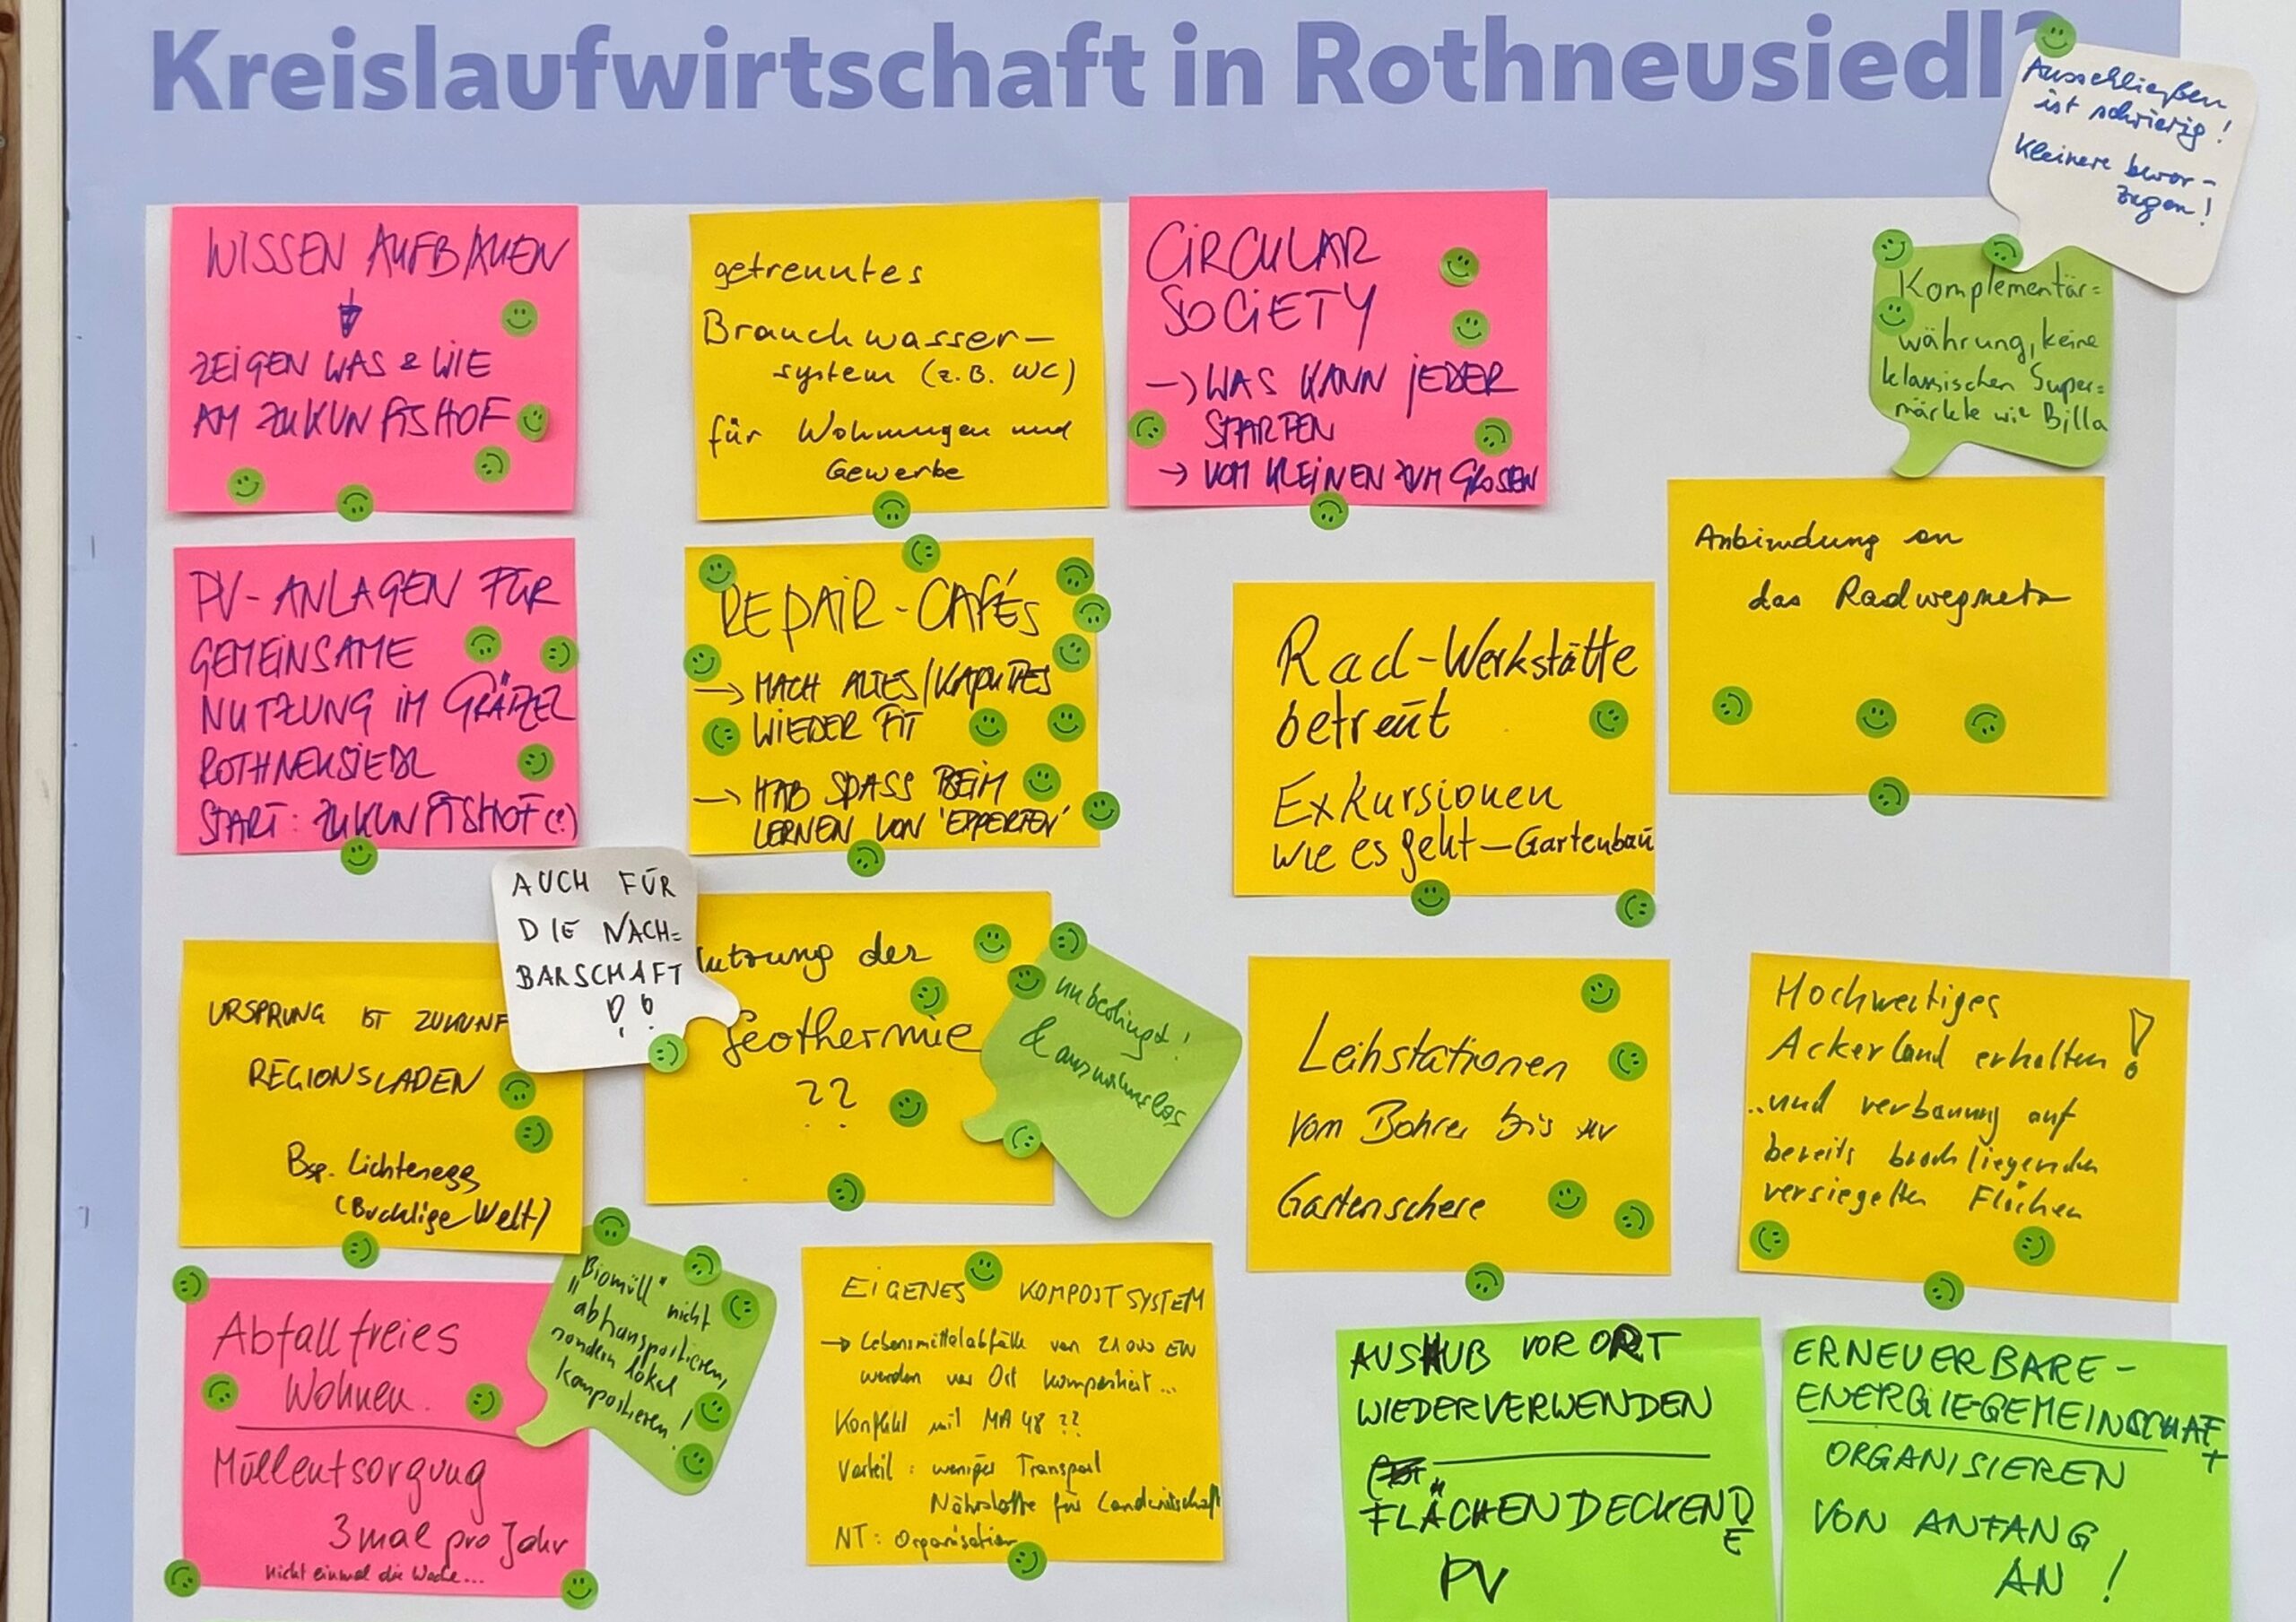 Kreislaufwirtschaft in Rothneusiedl?
Ausschließen
ist schwierig!
Kleinere bevor-
zugen!
WISSEN AUFBAUEN
ZEIGEN WAS & WIE
AM ZUKUNFTSHOF
getrenntes
Brauchwasser-
system (z.B. WC)
für Wohnungen und
Gewerbe
CIRCULAR
SOCIETY
→ WAS KANN JEDER
STARTEN
→ VOM KLEINEN ZUM GROSSEN
Komplementär=
währung, keine
klassischen Super=
märkte wie Billa
PV-ANLAGEN FÜR
GEMEINSAME
NUTZUNG IM GRÄTZEL
ROTHNEUSIEDL
START: ZUKUNFTSHOF (?)
REPAIR-CAFÉS
→ MACH ALTES/KAPUTTES
WIEDER FIT
→ HAB SPASS BEIM
LERNEN VON 'EXPERTEN'
Rad-Werkstätte
betreut
Exkursionen
wie es geht – Gartenbau
Anbindung an
das Radwegnetz
URSPRUNG IST ZUKUNF
REGIONSLADEN
Bsp. Lichtenegg
(Bucklige Welt)
AUCH FÜR
DIE NACH=
BARSCHAFT
!!
Nutzung der
Geothermie
??
unbedingt!
& ausnahmslos
Leihstationen
vom Bohrer bis zur
Gartenschere
Hochwertiges
Ackerland erhalten!
..und verbauung auf
bereits brach liegenden
versiegelten Flächen
Abfallfreies
Wohnen.
Müllentsorgung
3 mal pro Jahr
nicht einmal die Woche...
"Biomüll" nicht
abtransportieren,
sondern lokal
kompostieren!
EIGENES KOMPOSTSYSTEM
→ Lebensmittelabfälle von 21 000 EW
werden vor Ort kompostiert...
Konflikt mit MA 48 ??
Vorteil: weniger Transport
Nährstoffe für Landwirtschaft
NT: Organisation
AUSHUB VOR ORT
WIEDERVERWENDEN
FLÄCHENDECKENDE
PV
ERNEUERBARE-
ENERGIE-GEMEINSCHAFT
ORGANISIEREN
VON ANFANG
AN!